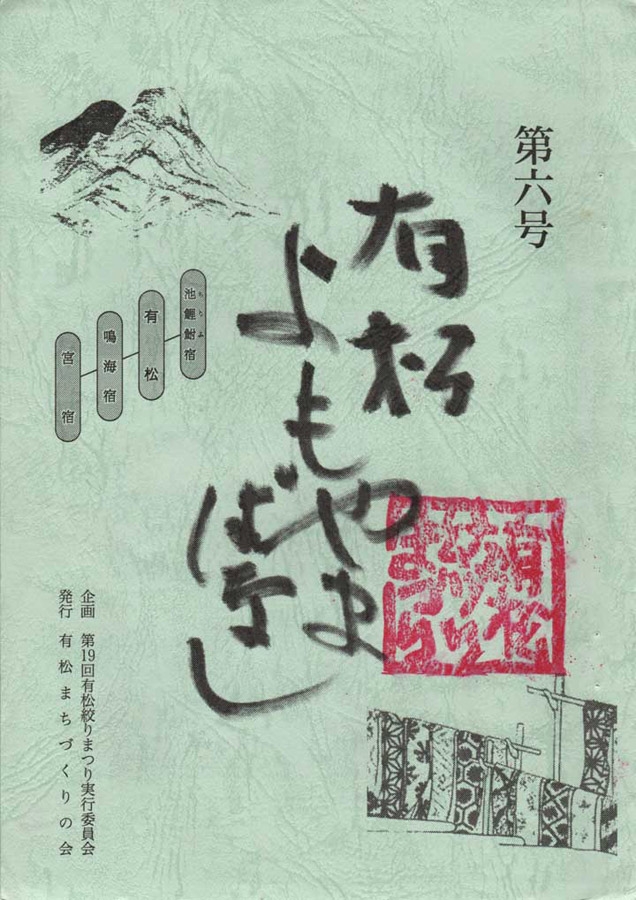 第六号
有松
よもやま
ばなし
池鯉鮒宿
ちりふ
有松
鳴海宿
宮宿
企画 第19回有松絞りまつり実行委員会
発行 有松まちづくりの会